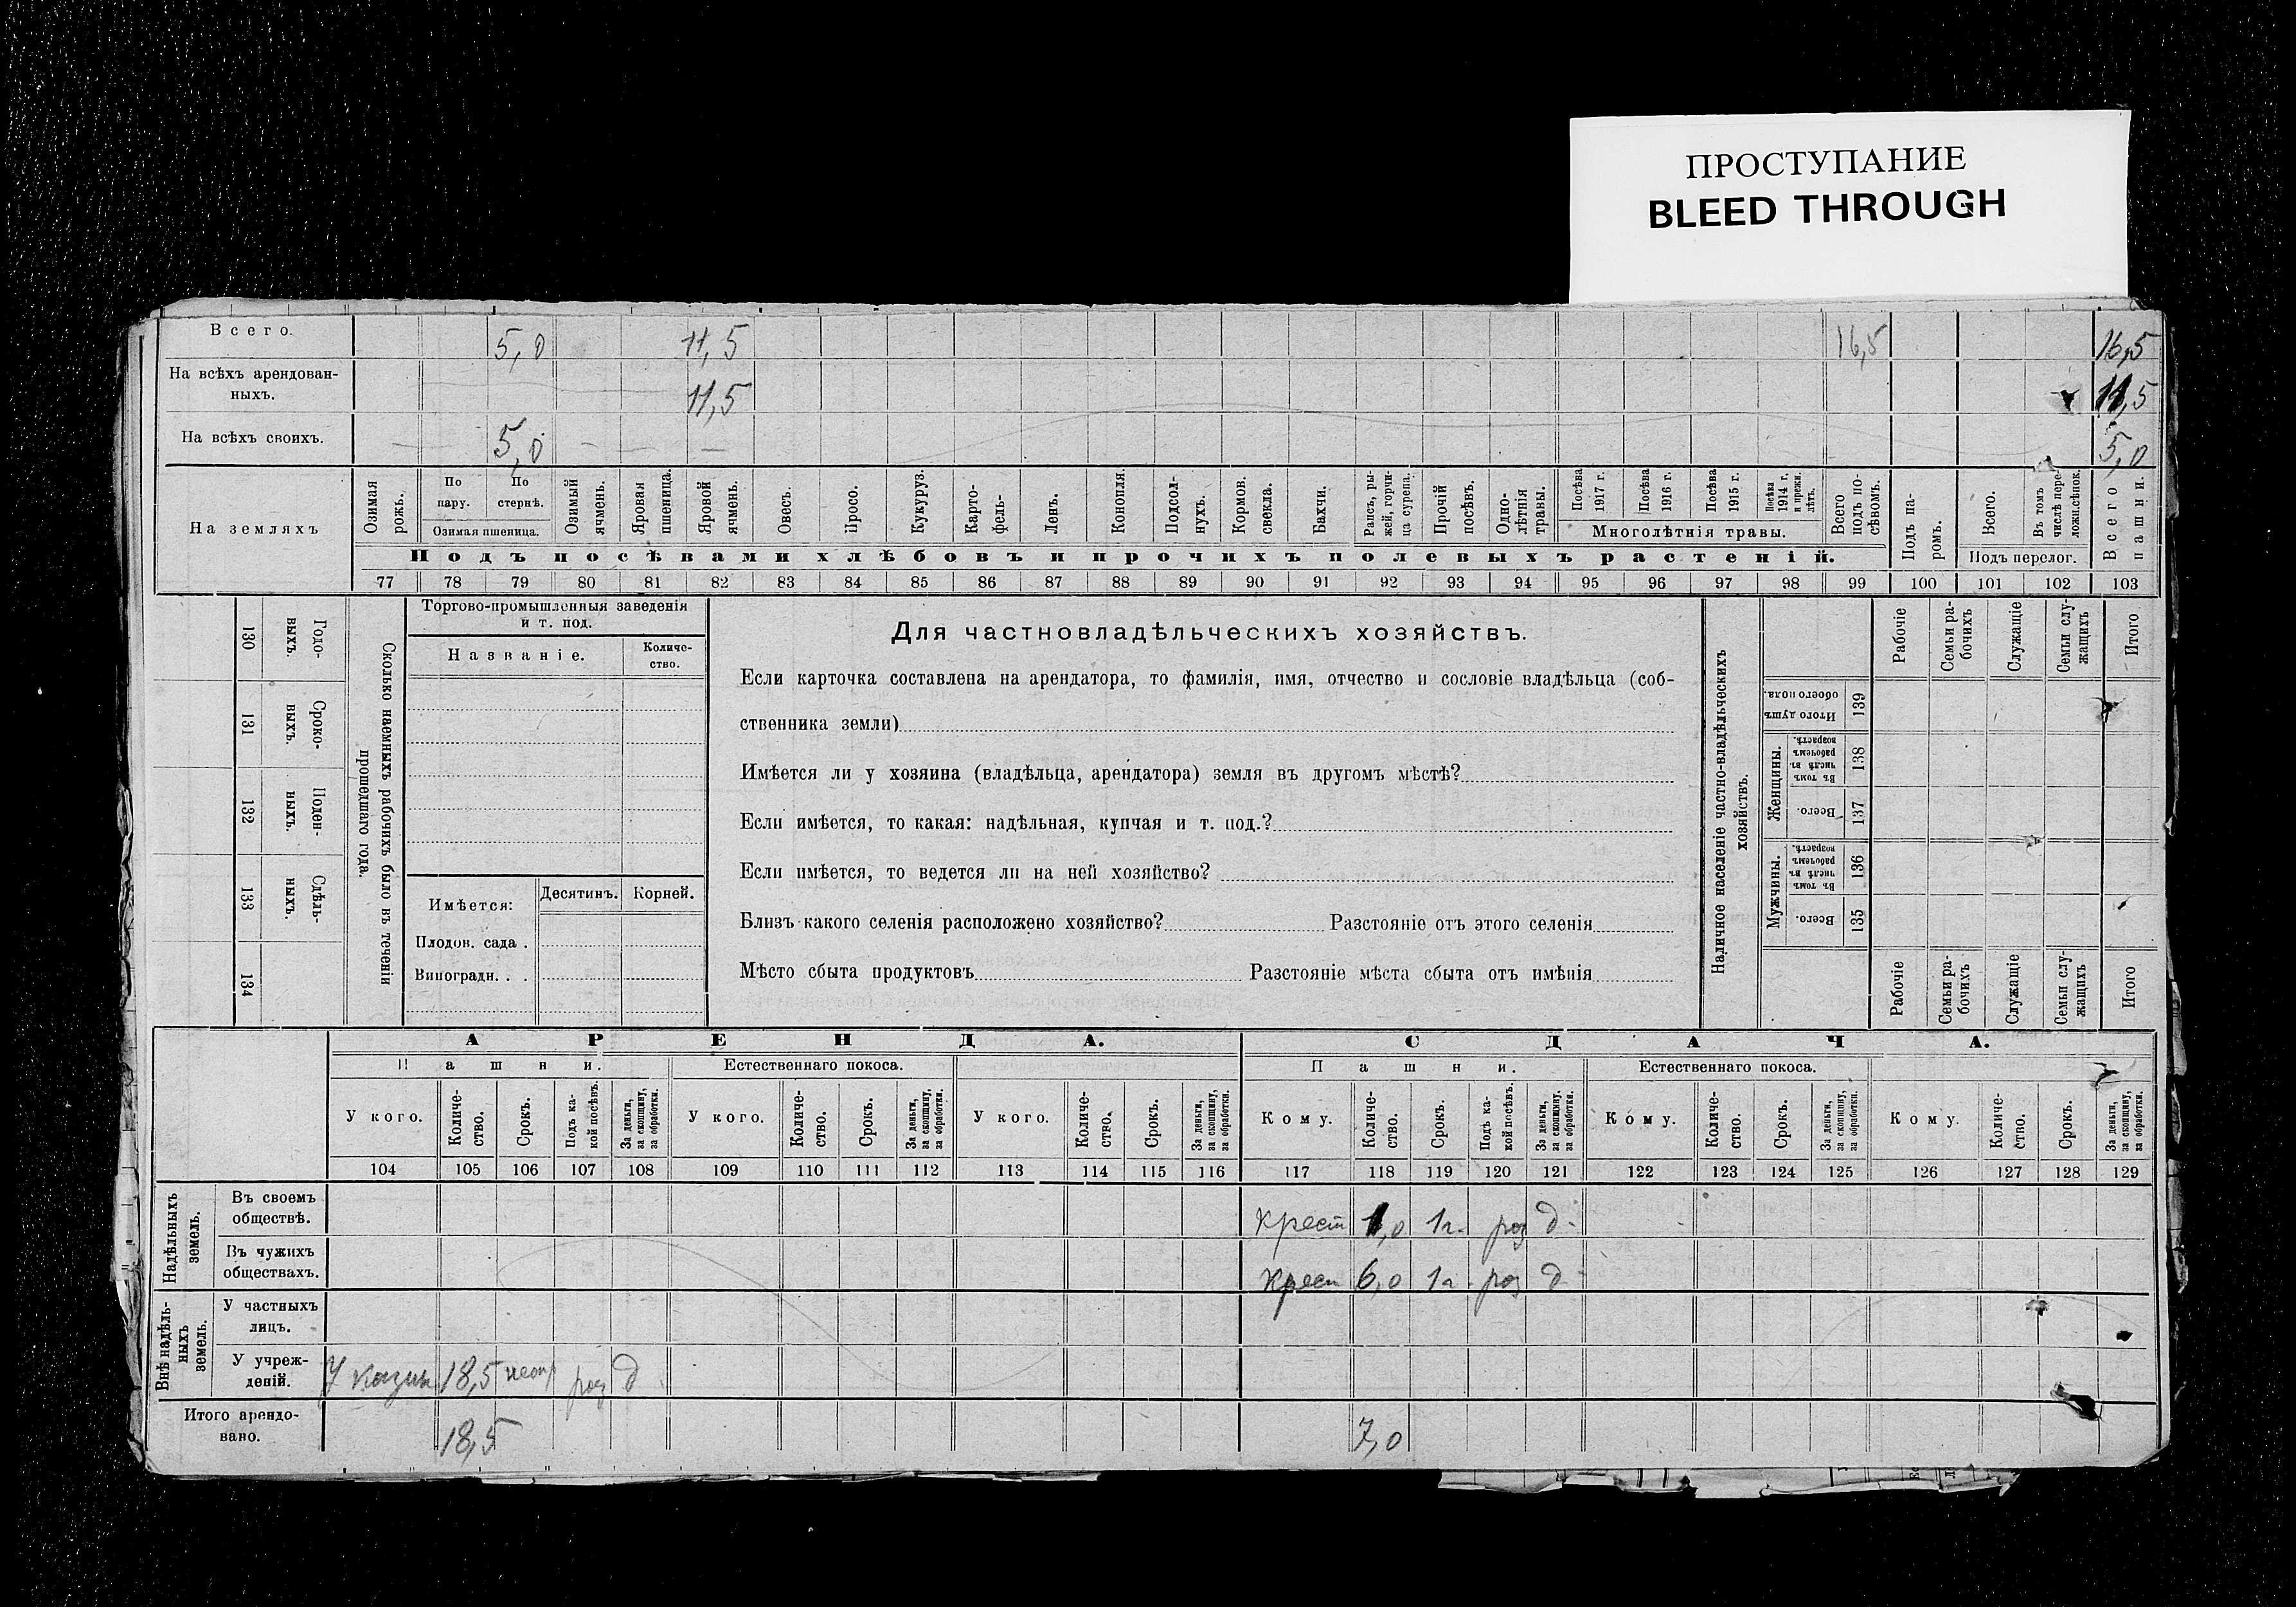 ПРОСТУПАНИЕ
BLEED THROUGH
Всего. 5,0 11,5 16,5 16,5
На всѣхъ арендован-
ныхъ. 11,5 11,5
На всѣхъ своихъ. — 5,0 — — — 5,0
На земляхъ
Озимая рожь.
По пару.
По стернѣ.
Озимая пшеница.
Озимый ячмень.
Яровая пшеница.
Яровой ячмень.
Овесъ.
Просо.
Кукуруз.
Карто-
фель-
Ленъ.
Конопля.
Подсол-
нухъ.
Кормов. свекла.
Бахчи.
Рапсъ, ры-
жей, горчи-
ца сурепа.
Прочій посѣвъ.
Одно-
лѣтнія травы.
Посѣва 1917 г.
Посѣва 1916 г.
Посѣва 1915 г.
Посѣва 1914 г. и прежн. лѣтъ.
Многолѣтнія травы.
Всего подъ по-
сѣвомъ.
Подъ па-
ромъ.
Всего.
Въ томъ числѣ пере-
ложн.сѣнок.
Подъ перелог.
Всего пашни.
Подъ посѣвами хлѣбовъ и прочихъ полевыхъ растеній.
77 78 79 80 81 82 83 84 85 86 87 88 89 90 91 92 93 94 95 96 97 98 99 100 101 102 103
130 Годо-
выхъ.
131 Сроко-
выхъ.
132 Поден-
ныхъ.
133 Сдѣль-
ныхъ.
134
Сколько наемныхъ рабочихъ было въ теченіи
прошедшаго года.
Торгово-промышленныя заведенія
и т. под.
Названіе.
Количе-
ство.
Имѣется:
Десятинъ. Корней.
Плодов. сада .
Виноградн. . .
Для частновладѣльческихъ хозяйствъ.
Если карточка составлена на арендатора, то фамилія, имя, отчество и сословіе владѣльца (соб-
ственника земли)
Имѣется ли у хозяина (владѣльца, арендатора) земля въ другомъ мѣстѣ?
Если имѣется, то какая: надѣльная, купчая и т. под.?
Если имѣется, то ведется ли на ней хозяйство?
Близъ какого селенія расположено хозяйство? Разстояніе отъ этого селенія
Мѣсто сбыта продуктовъ Разстояніе мѣста сбыта отъ имѣнія
Наличное населеніе частно-владѣльческихъ
хозяйствъ.
Рабочіе
Семьи ра-
бочихъ
Служащіе
Семьи слу-
жащихъ
Итого
Итого душъ обоего пола. 139
Женщины.
Въ томъ числѣ въ рабочемъ возрастѣ. 138
Всего. 137
Мужчины.
Въ томъ числѣ въ рабочемъ возрастѣ. 136
Всего. 135
Рабочіе
Семьи ра-
бочихъ
Служащіе
Семьи слу-
жащихъ
Итого
АРЕНДА. СДАЧА.
Пашни. Естественнаго покоса. Пашни. Естественнаго покоса.
У кого.
Количе-
ство.
Срокъ.
Подъ ка-
кой посѣвъ.
За деньги, за скопщину, за обработки.
У кого.
Количе-
ство.
Срокъ.
За деньги, за скопщину, за обработки.
У кого.
Количе-
ство.
Срокъ.
За деньги, за скопщину, за обработки.
Кому.
Количе-
ство.
Срокъ.
Подъ ка-
кой посѣвъ.
За деньги, за скопщину, за обработки.
Кому.
Количе-
ство.
Срокъ.
За деньги, за скопщину, за обработки.
Кому.
Количе-
ство.
Срокъ.
За деньги, за скопщину, за обработки.
104 105 106 107 108 109 110 111 112 113 114 115 116 117 118 119 120 121 122 123 124 125 126 127 128 129
Надѣльныхъ земель.
Въ своемъ
обществѣ. Крест 1,0 1г. роз д-
Въ чужихъ
обществахъ. Крест 6,0 1г. роз д-
Внѣ надѣль-
ныхъ земель.
У частныхъ
лицъ.
У учреж-
деній. У казны 18,5 роз д
Итого арендо-
вано. 18,5 7,0